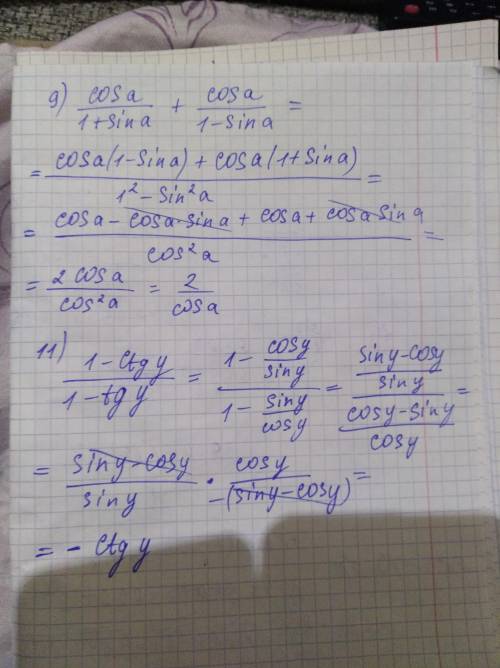 9) cos a / (1 + sin a) + cos a / (1 - sin a) =
= (cos a (1 - sin a) + cos a (1 + sin a)) / (1² - sin² a) =
= (cos a - cos a · sin a + cos a + cos a sin a) / cos² a =
= 2 cos a / cos² a = 2 / cos a
11) (1 - ctg y) / (1 - tg y) = (1 - cos y / sin y) / (1 - sin y / cos y) = ((sin y - cos y) / sin y) / ((cos y - sin y) / cos y) =
= (sin y - cos y) / sin y · cos y / -(sin y - cos y) =
= - ctg y